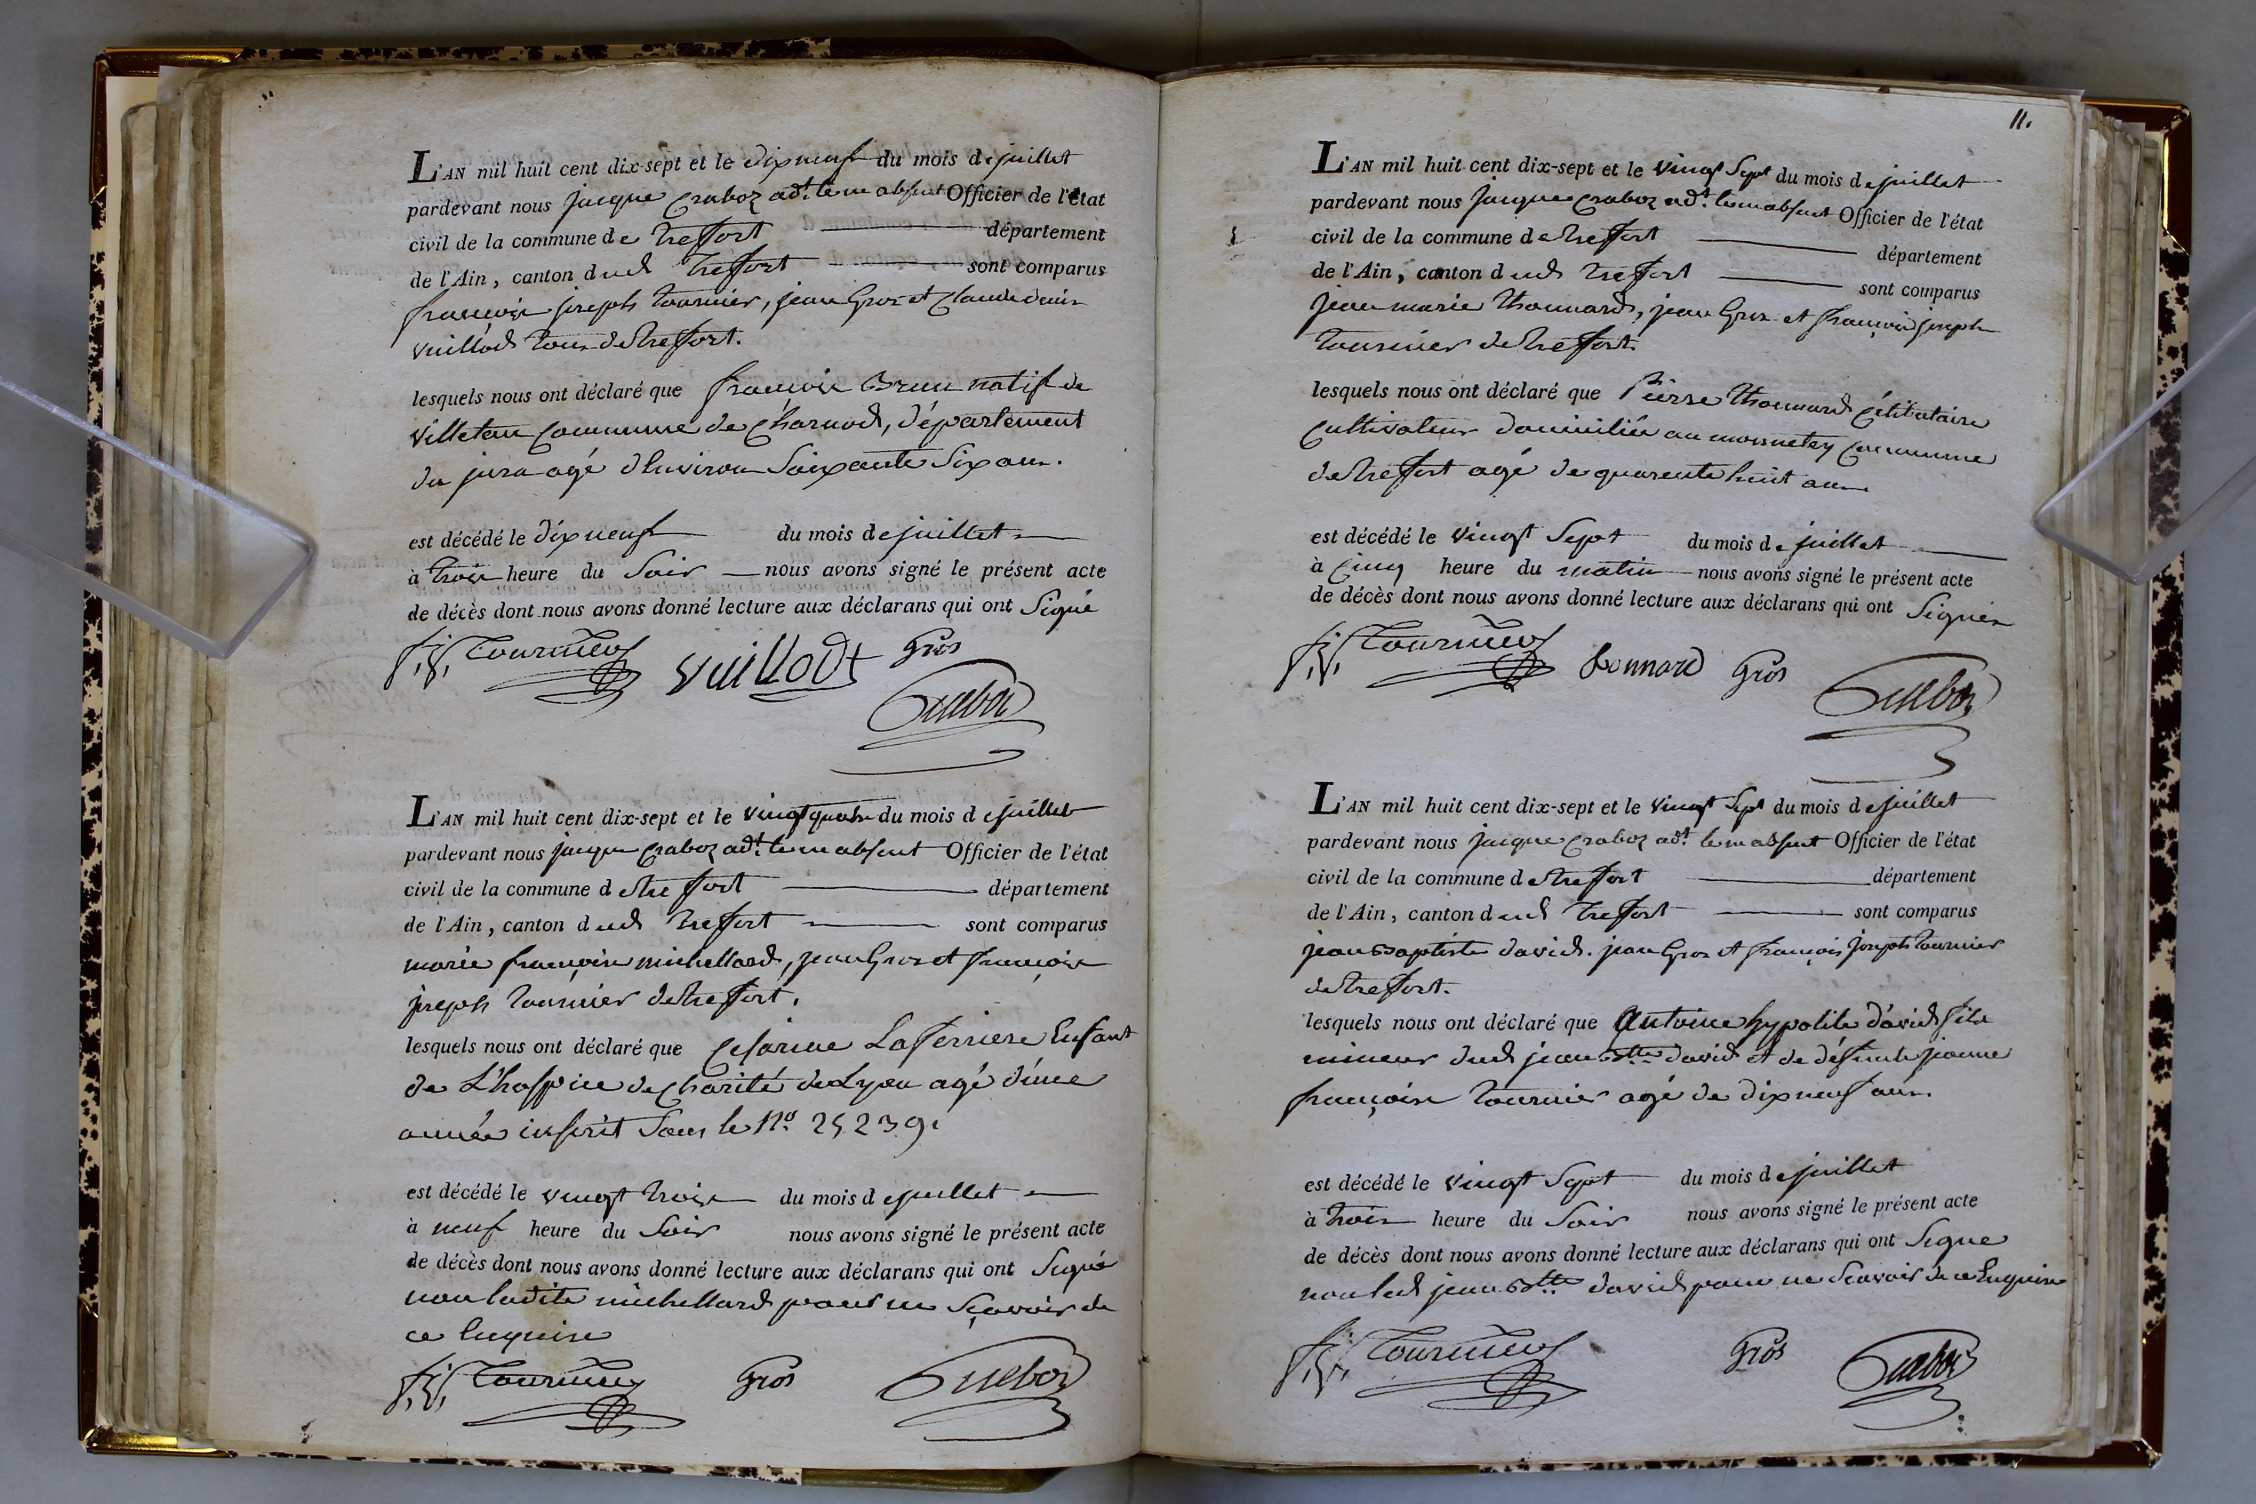 L'AN mil huit cent dix-sept et le dixneuf du mois de juillet
pardevant nous jacque Craboz adt. le m absent Officier de l'état
civil de la commune de Treffort département
de l'Ain, canton dud Treffort sont comparus
françois joseph tournier, jean Gros et Claude denis
vuillod tous de treffort.
lesquels nous ont déclaré que françois Brun natif de
villetan Commune de Charnod, département
du jura agé d'environ Soixante Six ans.
est décédé le dix neuf du mois de juillet
à trois heure du Soir nous avons signé le présent acte
de décès dont nous avons donné lecture aux déclarans qui ont Signé
f. j. Tournier Vuillodt Gros
Craboz
L'AN mil huit cent dix-sept et le vingt quatre du mois de juillet
pardevant nous jacque Craboz adt. le m absent Officier de l'état
civil de la commune de treffort département
de l'Ain, canton dud Treffort sont comparus
marie françoise michellard, jean Gros et françois
joseph tournier de treffort.
lesquels nous ont déclaré que Cesarine Laferriere Enfant
de L'hospice de Charité de Lyon agé d'une
année inscrit Sous le No. 25239.
est décédé le vingt trois du mois de juillet
à neuf heure du Soir nous avons signé le présent acte
de décès dont nous avons donné lecture aux déclarans qui ont Signé
non ladite michellard pour ne Sçavoir de
ce Enquise
f. j. Tournier Gros Craboz
11.
L'AN mil huit cent dix-sept et le vingt Sept du mois de juillet
pardevant nous jacque Craboz adt. le m absent Officier de l'état
civil de la commune de treffort département
de l'Ain, canton dud Treffort sont comparus
jean marie thonnard, jean Gros et françois joseph
tournier de treffort.
lesquels nous ont déclaré que Pierre thonnard Célibataire
Cultivateur domicilié au monnetey Commune
de treffort agé de quarente huit ans
est décédé le vingt Sept du mois de juillet
à Cinq heure du matin nous avons signé le présent acte
de décès dont nous avons donné lecture aux déclarans qui ont Signés
f. j. Tournier tonnard Gros
Craboz
L'AN mil huit cent dix-sept et le vingt Sept du mois de juillet
pardevant nous jacque Craboz adt. le m absent Officier de l'état
civil de la commune de treffort département
de l'Ain, canton dud Treffort sont comparus
jean Baptiste david. jean Gros et françois joseph tournier
de treffort.
lesquels nous ont déclaré que Antoine hypolite david fils
mineur dud jean Btte david et de défunte jeanne
françoise tournier agé de dix neuf ans.
est décédé le vingt Sept du mois de juillet
à trois heure du Soir nous avons signé le présent acte
de décès dont nous avons donné lecture aux déclarans qui ont Signe
non led jean Btte david pour ne Scavoir de ce Enquis
f. j. Tournier Gros Craboz